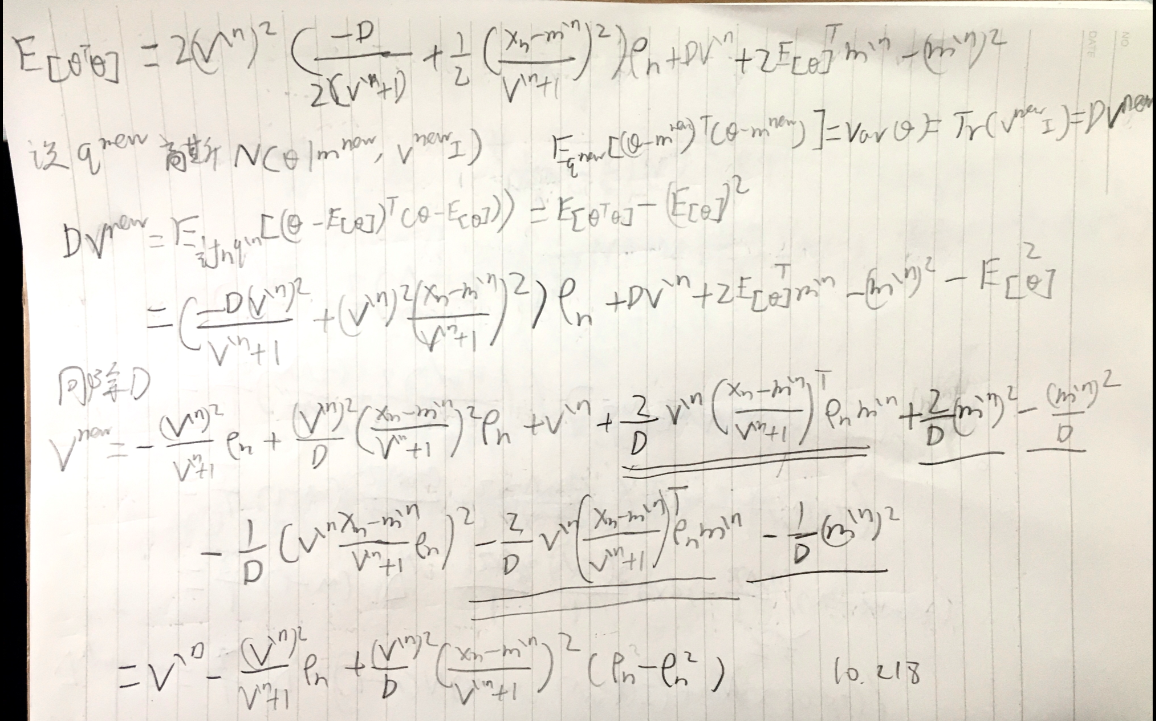 E[θᵀθ] = 2(V^{\n})² (−D/(2(V^{\n}+1)) + 1/2 ((xₙ−m^{\n})/(V^{\n}+1))²)ρₙ + DV^{\n} + 2E[θ]ᵀm^{\n} − (m^{\n})²
设 q^{new} 高斯 N(θ|m^{new}, V^{new}I) E_{q^{new}}[(θ−m^{new})ᵀ(θ−m^{new})] = Var(θ) = Tr(V^{new}I) = DV^{new}
DV^{new} = E[(θ−E[θ])ᵀ(θ−E[θ])] = E[θᵀθ] − (E[θ])²
= (−D(V^{\n})²/(V^{\n}+1) + (V^{\n})²((xₙ−m^{\n})/(V^{\n}+1))²)ρₙ + DV^{\n} + 2E[θ]ᵀm^{\n} − (m^{\n})² − E[θ]²
同除D
V^{new} = −(V^{\n})²/(V^{\n}+1) ρₙ + (V^{\n})²/D ((xₙ−m^{\n})/(V^{\n}+1))²ρₙ + V^{\n} + 2/D V^{\n}((xₙ−m^{\n})/(V^{\n}+1))ᵀρₙm^{\n} + 2/D (m^{\n})² − (m^{\n})²/D
− 1/D (V^{\n} (xₙ−m^{\n})/(V^{\n}+1) ρₙ)² − 2/D V^{\n}((xₙ−m^{\n})/(V^{\n}+1))ᵀρₙm^{\n} − 1/D (m^{\n})²
= V^{\n} − (V^{\n})²/(V^{\n}+1) ρₙ + (V^{\n})²/D ((xₙ−m^{\n})/(V^{\n}+1))² (ρₙ−ρₙ²) 10.218
NO
DATE